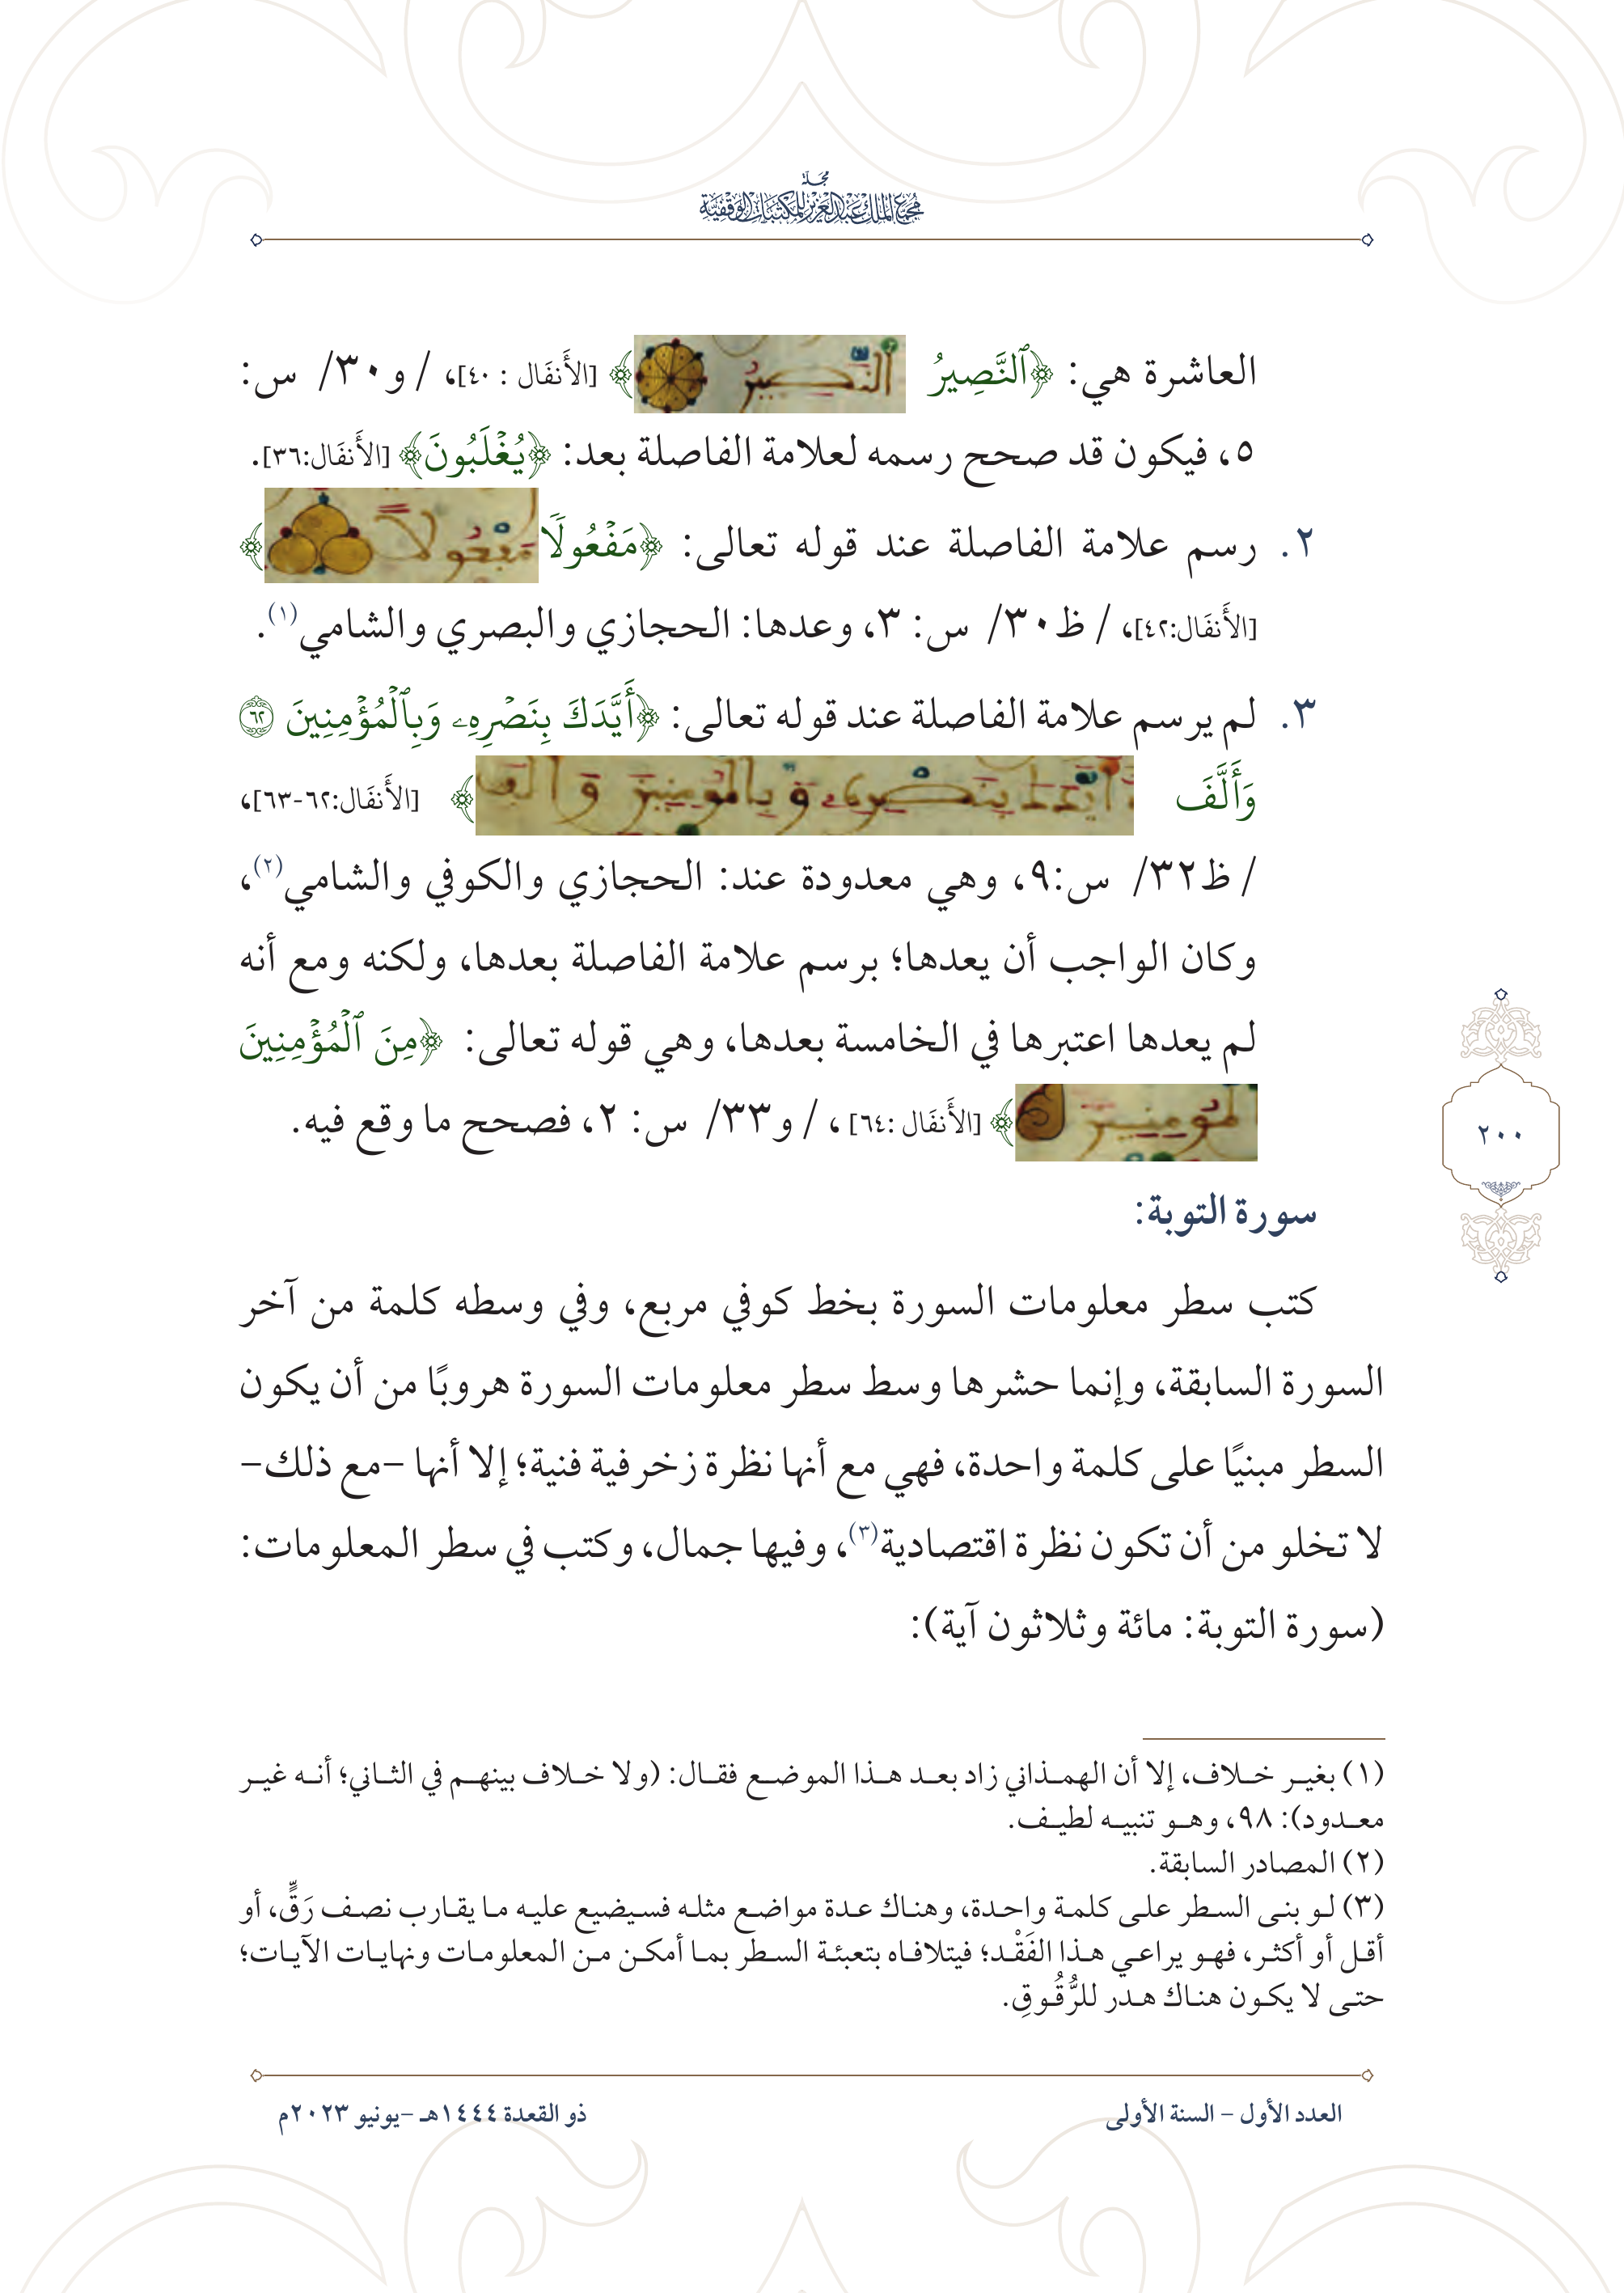 مجلة
مجمع الملك عبدالعزيز للمكتبات الوقفية
العاشرة هي: ﴿ٱلنَّصِيرُ النصير﴾ [الأَنفَال : ٤٠]، /و٣٠/ س:
٥، فيكون قد صحح رسمه لعلامة الفاصلة بعد: ﴿يُغْلَبُونَ﴾ [الأَنفَال:٣٦].
٢. رسم علامة الفاصلة عند قوله تعالى: ﴿مَفْعُولًا مفعولا﴾
[الأَنفَال:٤٢]، /ظ٣٠/ س: ٣، وعدها: الحجازي والبصري والشامي(١).
٣. لم يرسم علامة الفاصلة عند قوله تعالى: ﴿أَيَّدَكَ بِنَصْرِهِۦ وَبِٱلْمُؤْمِنِينَ ٦٢
وَأَلَّفَ ايدك بنصره وبالمومنين والف﴾ [الأَنفَال:٦٢-٦٣]،
/ظ٣٢/ س:٩، وهي معدودة عند: الحجازي والكوفي والشامي(٢)،
وكان الواجب أن يعدها؛ برسم علامة الفاصلة بعدها، ولكنه ومع أنه
لم يعدها اعتبرها في الخامسة بعدها، وهي قوله تعالى: ﴿مِنَ ٱلْمُؤْمِنِينَ
لمومنين﴾ [الأَنفَال :٦٤] ، /و٣٣/ س: ٢، فصحح ما وقع فيه.
سورة التوبة:
كتب سطر معلومات السورة بخط كوفي مربع، وفي وسطه كلمة من آخر
السورة السابقة، وإنما حشرها وسط سطر معلومات السورة هروبًا من أن يكون
السطر مبنيًا على كلمة واحدة، فهي مع أنها نظرة زخرفية فنية؛ إلا أنها –مع ذلك–
لا تخلو من أن تكون نظرة اقتصادية(٣)، وفيها جمال، وكتب في سطر المعلومات:
(سورة التوبة: مائة وثلاثون آية):
٢٠٠
(١) بغير خلاف، إلا أن الهمذاني زاد بعد هذا الموضع فقال: (ولا خلاف بينهم في الثاني؛ أنه غير
معدود): ٩٨، وهو تنبيه لطيف.
(٢) المصادر السابقة.
(٣) لو بنى السطر على كلمة واحدة، وهناك عدة مواضع مثله فسيضيع عليه ما يقارب نصف رَقٍّ، أو
أقل أو أكثر، فهو يراعي هذا الفَقْد؛ فيتلافاه بتعبئة السطر بما أمكن من المعلومات ونهايات الآيات؛
حتى لا يكون هناك هدر للرُّقُوقِ.
العدد الأول – السنة الأولى
ذو القعدة ١٤٤٤هـ –يونيو ٢٠٢٣م